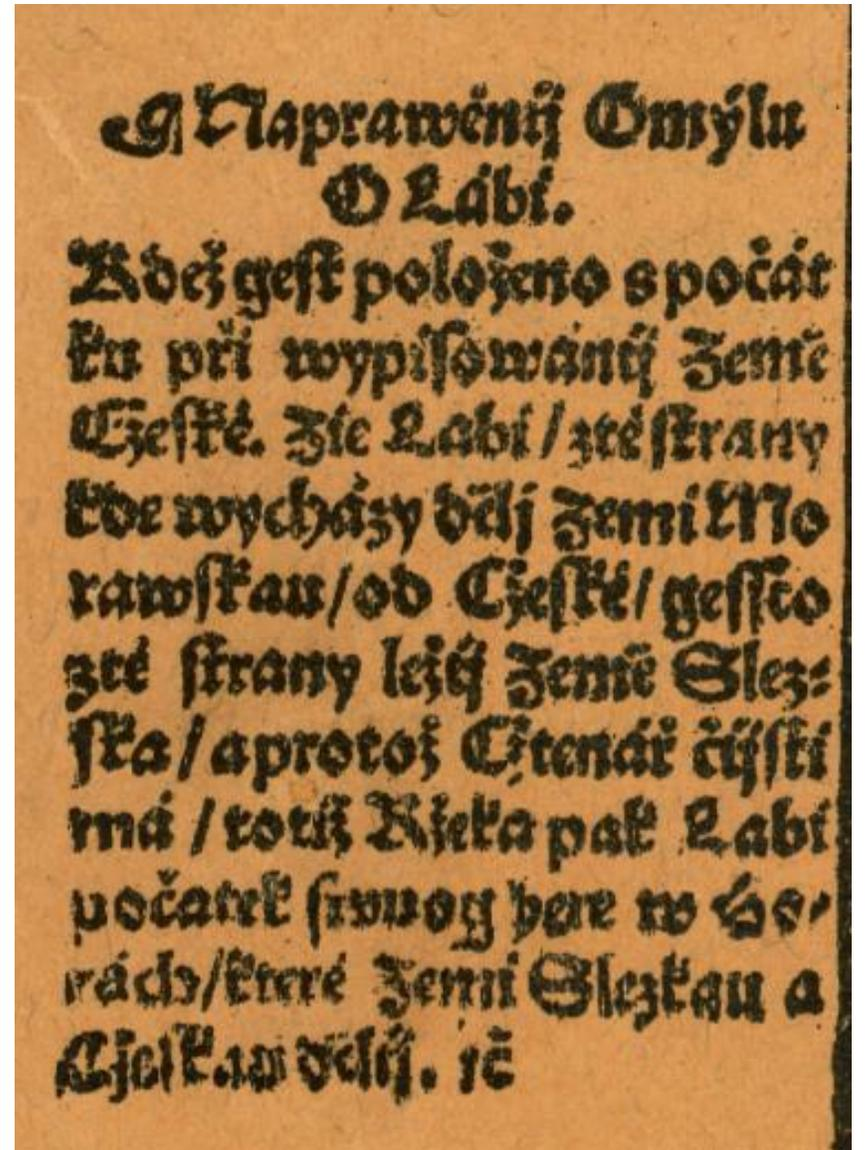 ¶ Naprawěnij Omýlu
O Lábi.
Kdež gest položeno s počát
ku při wypisowánij Země
Czeské. Zie Labi / zté strany
kde wycházy dělj Zemi Mo
rawskau / od Czieské / gessto
zté strany ležij Země Slez⸗
ska / a protož Cžtenář čijsti
má / totiž Ržeka pak Labi
počatek swuog bere w Ho⸗
rách / které Zemi Slezkau a
Cžeskau dělij. ꝛč